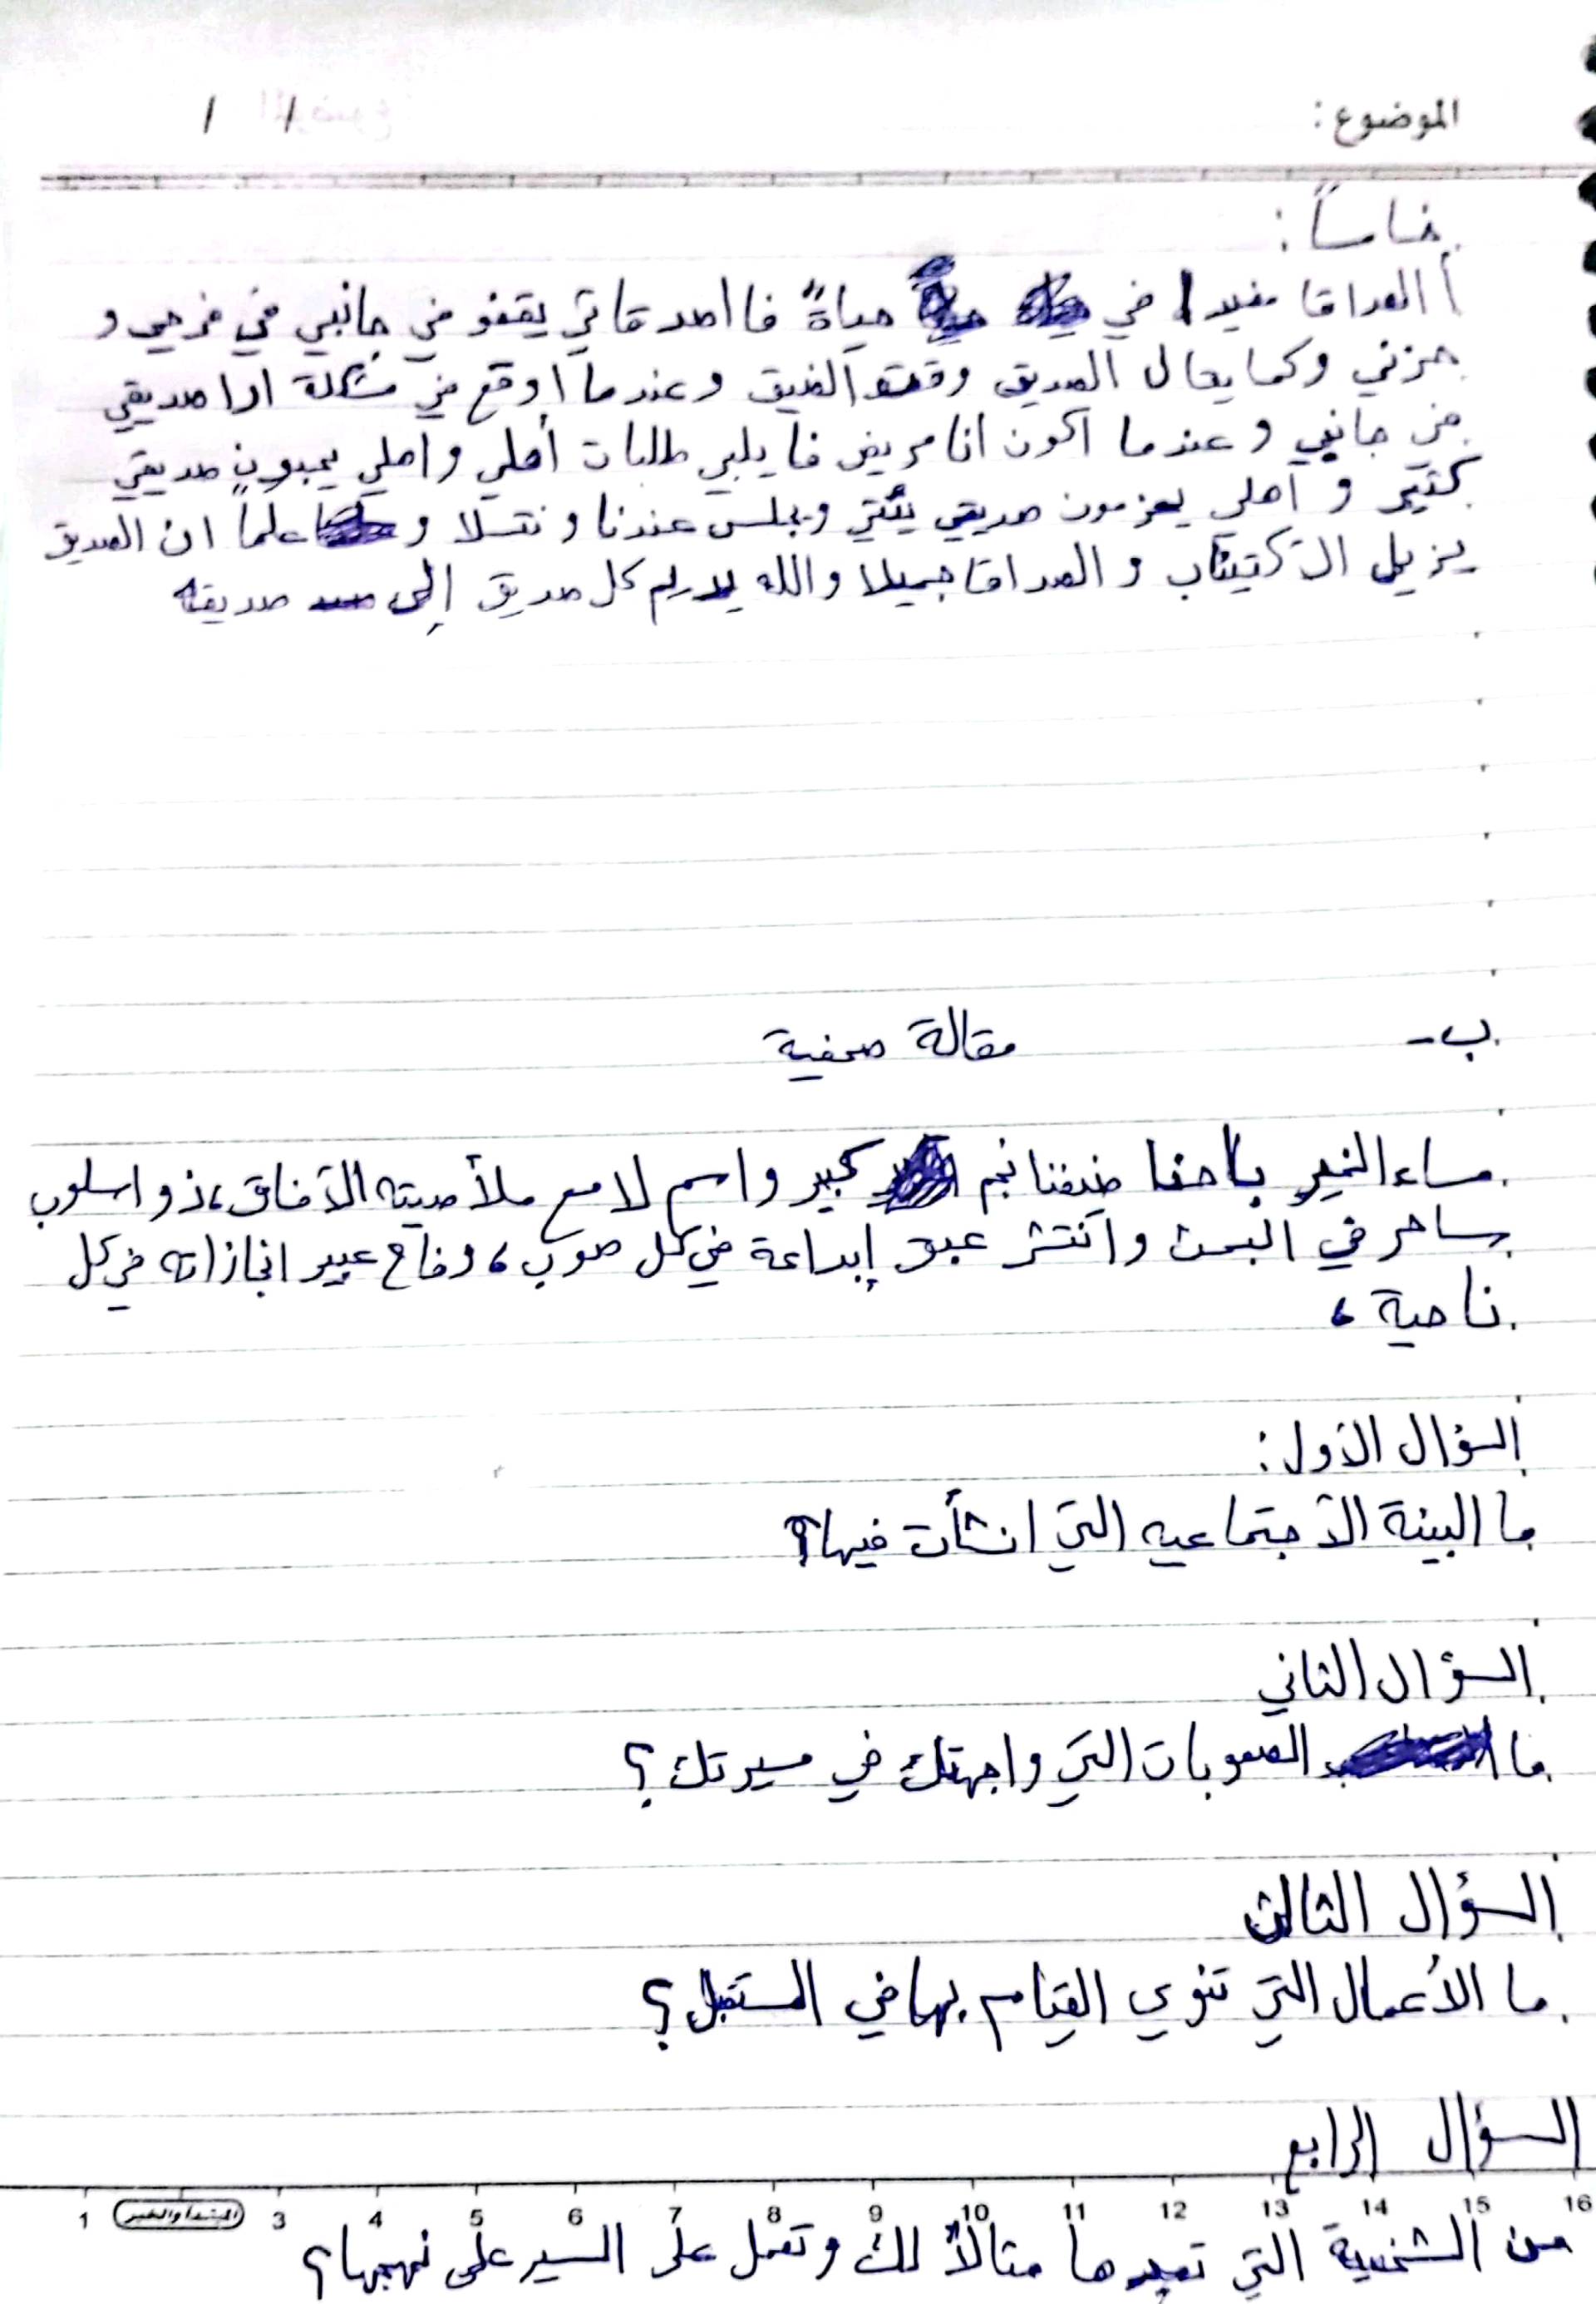 الموضوع:
/ /
خامساً:
أ الصداقا مفيدا في حياةً فا اصدقائي يقفو في جانبي في فرحي و
حزني وكما يقال الصديق وقت الضيق وعندما اوقع في مشكلة ارا صديقي
في جانبي وعندما اكون انا مريض فا يلبي طلبات أهلي واهلي يحبون صديقي
كثير و أهلي يعزمون صديقي يئتي ويجلس عندنا و نتسلا و علماً ان الصديق
يزيل الأكتيئاب و الصداقا جميلا والله يديم كل صديق إلى صديقه
ب- مقالة صحفية
مساء الخير باحفا ضيفنا نجم كبير واسم لامع ملأ صيته الآفاق، ذو اسلوب
ساحر في البحث وانتشر عبق إبداعة في كل صوب، وفاح عبير انجازاته في كل
ناحية،
السؤال الأول:
ما البيئة الأجتماعيه التي انشأت فيها؟
السؤال الثاني
ما الصعوبات التي واجهتك في مسيرتك؟
السؤال الثالث
ما الأعمال التي تنوي القيام بها في المستقبل؟
السؤال الرابع
1 المبتدأ والخبر 3 4 5 6 7 8 9 10 11 12 13 14 15 16
من الشخصية التي تعدها مثالاً لك وتعمل على السير على نهجها؟